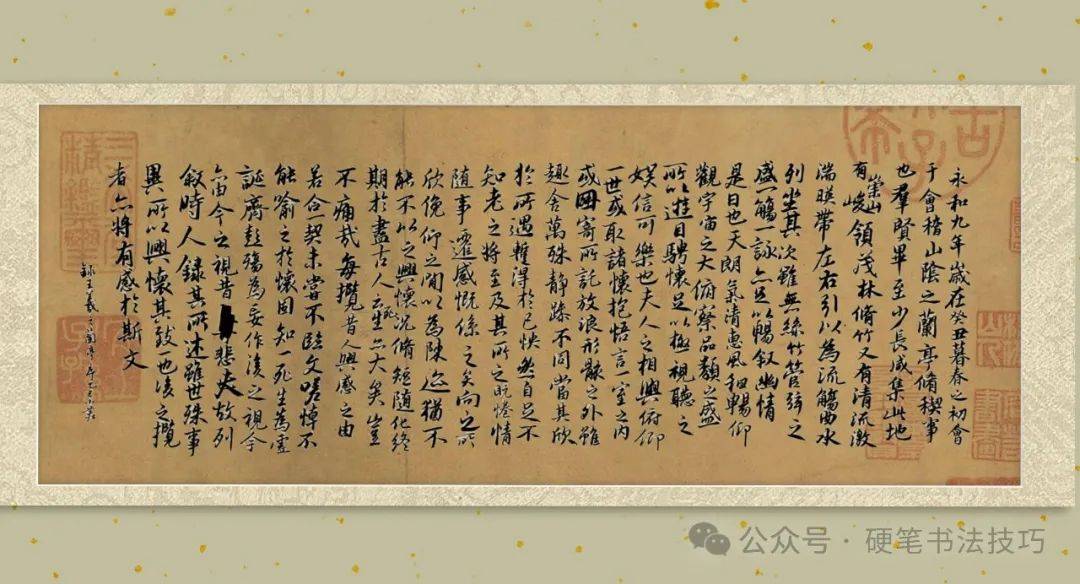 永和九年歲在癸丑暮春之初會
于會稽山陰之蘭亭脩稧事
也羣賢畢至少長咸集此地
有崇山峻領茂林脩竹又有清流激
湍暎帶左右引以為流觴曲水
列坐其次雖無絲竹管弦之
盛一觴一詠亦足以暢敘幽情
是日也天朗氣清惠風和暢仰
觀宇宙之大俯察品類之盛
所以遊目騁懷足以極視聽之
娛信可樂也夫人之相與俯仰
一世或取諸懷抱悟言一室之內
或因寄所託放浪形骸之外雖
趣舍萬殊静躁不同當其欣
於所遇暫得於己怏然自足不
知老之將至及其所之既惓情
隨事遷感慨係之矣向之所
欣俛仰之閒以為陳迹猶不
能不以之興懷況脩短隨化終
期於盡古人云死生亦大矣豈
不痛哉每攬昔人興感之由
若合一契未嘗不臨文嗟悼不
能喻之於懷固知一死生為虛
誕齊彭殤為妄作後之視今
亦由今之視昔悲夫故列
敘時人錄其所述雖世殊事
異所以興懷其致一也後之攬
者亦將有感於斯文
錄王羲之蘭亭序
公众号·硬笔书法技巧